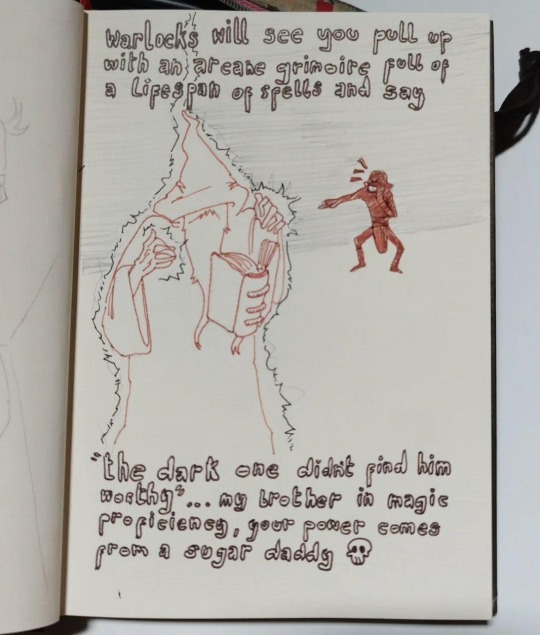 warlocks will see you pull up
with an arcane grimoire full of
a lifespan of spells and say
"the dark one didnt find him
worthy"... my brother in magic
proficiency, your power comes
from a sugar daddy 💀